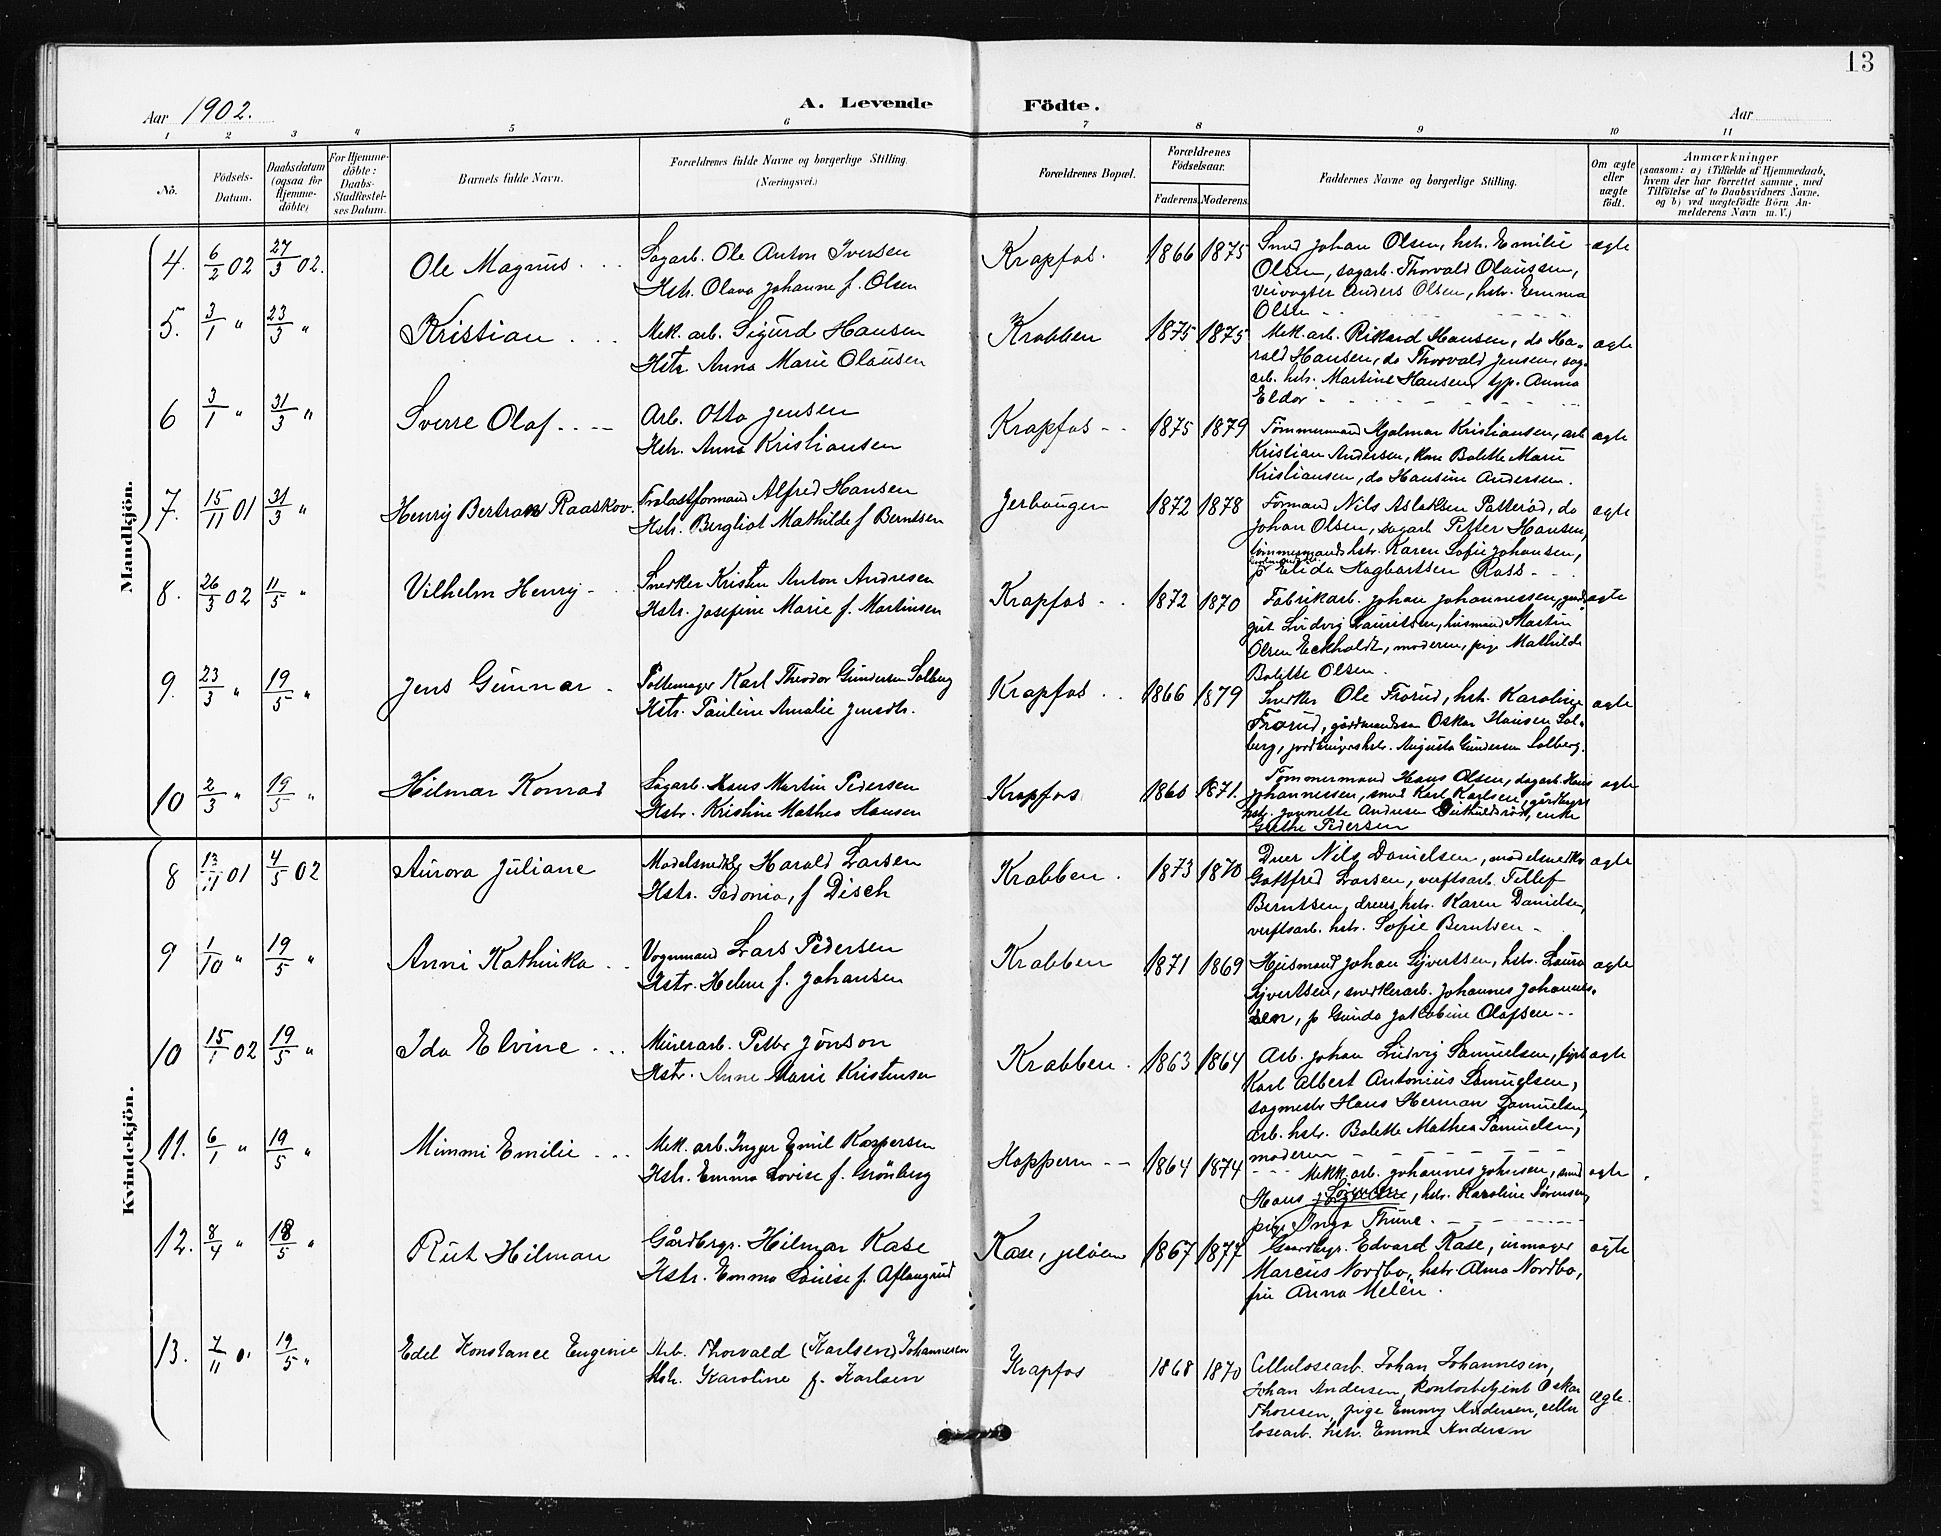 13
Aar 1902. A. Levende Födte. Aar
1 2 3 4 5 6 7 8 9 10 11
Nô. Födsels-Datum. Daabsdatum (ogsaa for Hjemme-döbte) For Hjemme-döbte: Daabs-Stadfæstel-ses Datum. Barnets fulde Navn. Forældrenes fulde Navne og borgerlige Stilling. (Næringsvei.) Forældrenes Bopæl. Forældrenes Födselsaar. Faderens. Moderens. Faddernes Navne og borgerlige Stilling. Om ægte eller uægte födt. Anmærkninger (saasom: a) i Tilfælde af Hjemmedaab, hvem der har forrettet samme, med Tilföielse af to Daabsvidners Navne, og b) ved uægtefödte Börn An-melderens Navn m. V.)
Mandkjön.
4. 6/2 02 27/3 02. Ole Magnus Sagarb. Ole Anton Iversen
Hstr. Olava Johanne f. Olsen
Krapfos. 1866 1875 Smed Johan Olsen, hstr. Emilie ægte
Olsen, sagarb. Thorvald Olaussen,
Veivogter Anders Olsen, hstr. Emma
Olsen
5. 3/1 " 23/3 " Kristian Mek. arb. Sigurd Hansen
Hstr. Anna Marie Olausen
Krabben 1875 1875 Mek. arb. Rikard Hansen, do Ha- ægte
rald Hansen, do Thorvald Jensen, sag-
arb. hstr. Martine Hansen, syp. Anna
Eldor
6 3/1 " 31/3 " Sverre Olaf Arb. Otto Jensen
Hstr. Anna Kristiansen
Krapfos 1875 1879 Tömmermand Hjalmar Kristiansen, arb ægte
Kristian Andersen, kone Bolette Marie
Kristiansen, do Hansine Andersen.
7. 15/11 01 31/3 " Henry Bertram Raaskov. Trælastformand Alfred Hansen
Hstr. Bergliot Mathilde f Berntsen
Jerbaugen 1872 1878 Formand Nils Aslaksen Patteröd, do ægte
Johan Olsen, sagarb Petter Hansen,
tömmermands hstr. Karen Sofie Johansen,
p Elida Hagbartsen Ross
8. 26/3 02 11/5 " Vilhelm Henry Snedker Kristen Anton Andresen
Hstr. Josefine Marie f. Martinsen
Krapfos 1872 1870 Fabrikarb. Johan Johannessen, ægte
gut Ludvig Lauritsen, husmand Martin
Olsen Eckholdt, moderen, pige Mathilde
Bolette Olsen.
9. 23/3 " 19/5 " Jens Gunnar Pottemager Karl Theodor Gundersen Solberg
Hstr. Pauline Amalie Jensdtr.
Krapfos 1866 1879 Snedker Ole Frorud, hstr. Karoline ægte
Frorud, gårdmandssön Oskar Hansen Sol-
berg, jordbrugers hstr. Augusta Gundersen Solberg.
10 2/3 " 19/5 " Hilmar Konrad Sagarb. Hans Martin Pedersen
Hstr. Kristine Mathea Hansen
Krapfos 1860 1871. Tömmermand Hans Olsen, sagarb. Hans ægte
Johannessen, smed Karl Karlsen, gårdbrgrs
hstr. Jannette Andersen, enke
Grethe Pedersen
Kvindekjön.
8 13/11 01 4/5 02 Aurora Juliane Modelsnedker Harald Larsen
Hstr. Sedonia, f Disch
Krabben. 1873 1870 Dreer Nils Danielsen, modelsnedkr ægte
Gottfred Larsen, verftsarb. Tellef
Berntsen, dreers hstr. Karen Danielsen,
verftsarb. hstr. Sofie Berntsen
9 1/10 " 19/5 " Anni Kathinka Vognmand Lars Pedersen
Hstr. Helene f. Johansen
Krabben 1871 1869 Husmand Johan Syvertsen, hstr. Laura ægte
Syvertsen, snedkerarb. Johannes Johannes-
sen, p Gunda Jakobine Olafsen
10 15/1 02 19/5 " Ida Elvine Murerarb. Petter Jönson
Hstr. Anne Marie Kristensen
Krabben. 1863 1864 Arb. Johan Ludvig Samuelsen, fyrb ægte
Karl Albert Antonius Samuelsen,
sagmestr Hans Herman Samuelsen,
arb. hstr. Bolette Mathea Samuelsen,
moderen
11. 6/1 " 19/5 " Mimmi Emilie Mek. arb. Inger Emil Kaspersen
Hstr. Emma Lovise f. Grönberg
Koppern 1864 1874 Mekk. arb. Johannes Johnsen, smed ægte
Hans Sörensen, hstr. Karoline Sörensen,
pige Inga Thune.
12. 8/4 " 18/5 " Rut Hilman Gårdbrgr. Hilmar Kase
Hstr. Emma Louise f. Aflangrud
Kase, Jelöen 1867 1877 Gaardbgr. Edvard Kase, urmager ægte
Marcus Nordbo, hstr. Alma Nordbo,
frü Anna Melèn.
13. 7/11 01 19/5 " Edel Konstance Eugenie Arb. Thorvald (Karlsen) Johannesen
Hstr. Karoline f. Karlsen
Krapfos 1868 1870 Cellulosearb. Johan Johannesen,
Johan Andersen, kontorbetjent Oskar ægte.
Thoresen, pige Emmy Andersen, cellu
losearb. hstr. Emma Andersen